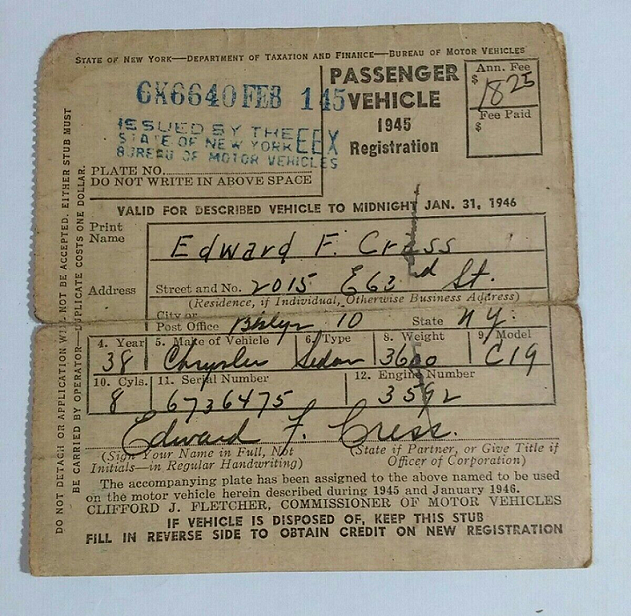 STATE OF NEW YORK—DEPARTMENT OF TAXATION AND FINANCE—BUREAU OF MOTOR VEHICLES
6K6640 FEB 1 45
ISSUED BY THE
STATE OF NEW YORK
BUREAU OF MOTOR VEHICLES
PLATE NO.
DO NOT WRITE IN ABOVE SPACE
PASSENGER
VEHICLE
1945
Registration
Ann. Fee
$ 18 25
Fee Paid
$
VALID FOR DESCRIBED VEHICLE TO MIDNIGHT JAN. 31, 1946
Print Name Edward F. Cress
Address Street and No. 2015 E 63rd St.
(Residence, if Individual, Otherwise Business Address)
City or Post Office Bklyn 10 State N.Y.
4. Year 5. Make of Vehicle 6. Type 8. Weight 9. Model
38 Chrysler Sedan 3600 C19
10. Cyls. 11. Serial Number 12. Engine Number
8 6736475 3592
Edward F. Cress.
(Sign Your Name in Full, Not Initials—in Regular Handwriting)
(State if Partner, or Give Title if Officer of Corporation)
The accompanying plate has been assigned to the above named to be used
on the motor vehicle herein described during 1945 and January 1946.
CLIFFORD J. FLETCHER, COMMISSIONER OF MOTOR VEHICLES
IF VEHICLE IS DISPOSED OF, KEEP THIS STUB
FILL IN REVERSE SIDE TO OBTAIN CREDIT ON NEW REGISTRATION
DO NOT DETACH OR APPLICATION WILL NOT BE ACCEPTED. EITHER STUB MUST
BE CARRIED BY OPERATOR—DUPLICATE COSTS ONE DOLLAR.